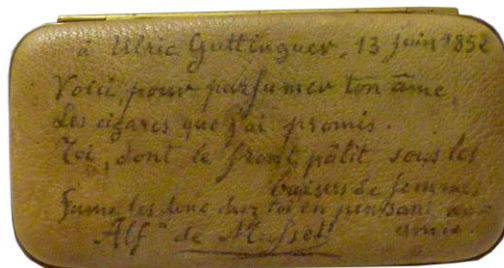 à Ulric Guttinguer, 13 juin 1852
Voici, pour parfumer ton âme,
Les cigares que j'ai promis.
Toi, dont le front pâlit sous les
baisers de femmes
Fume les donc chez toi en pensant aux
amis.
Alf^d de Musset